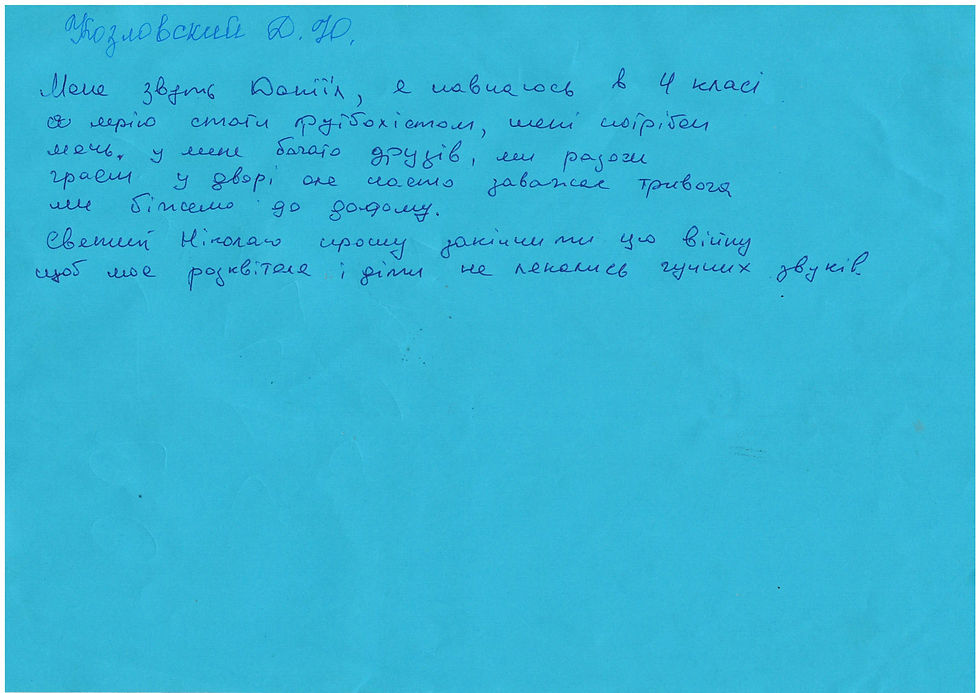 Козловский Д. Ю.
Мене звуть Даніїл, я навчаюсь в 4 класі
я мрію стати футболістом, мені потрібен
мечь. у мене багато друзів, ми разом
граєм у дворі але часто заважає тривога
ми біжемо до додому.
Святий Ніколаю прошу закінчити цю війну
щоб моє розквітала і діти не лякались гучних звуків.